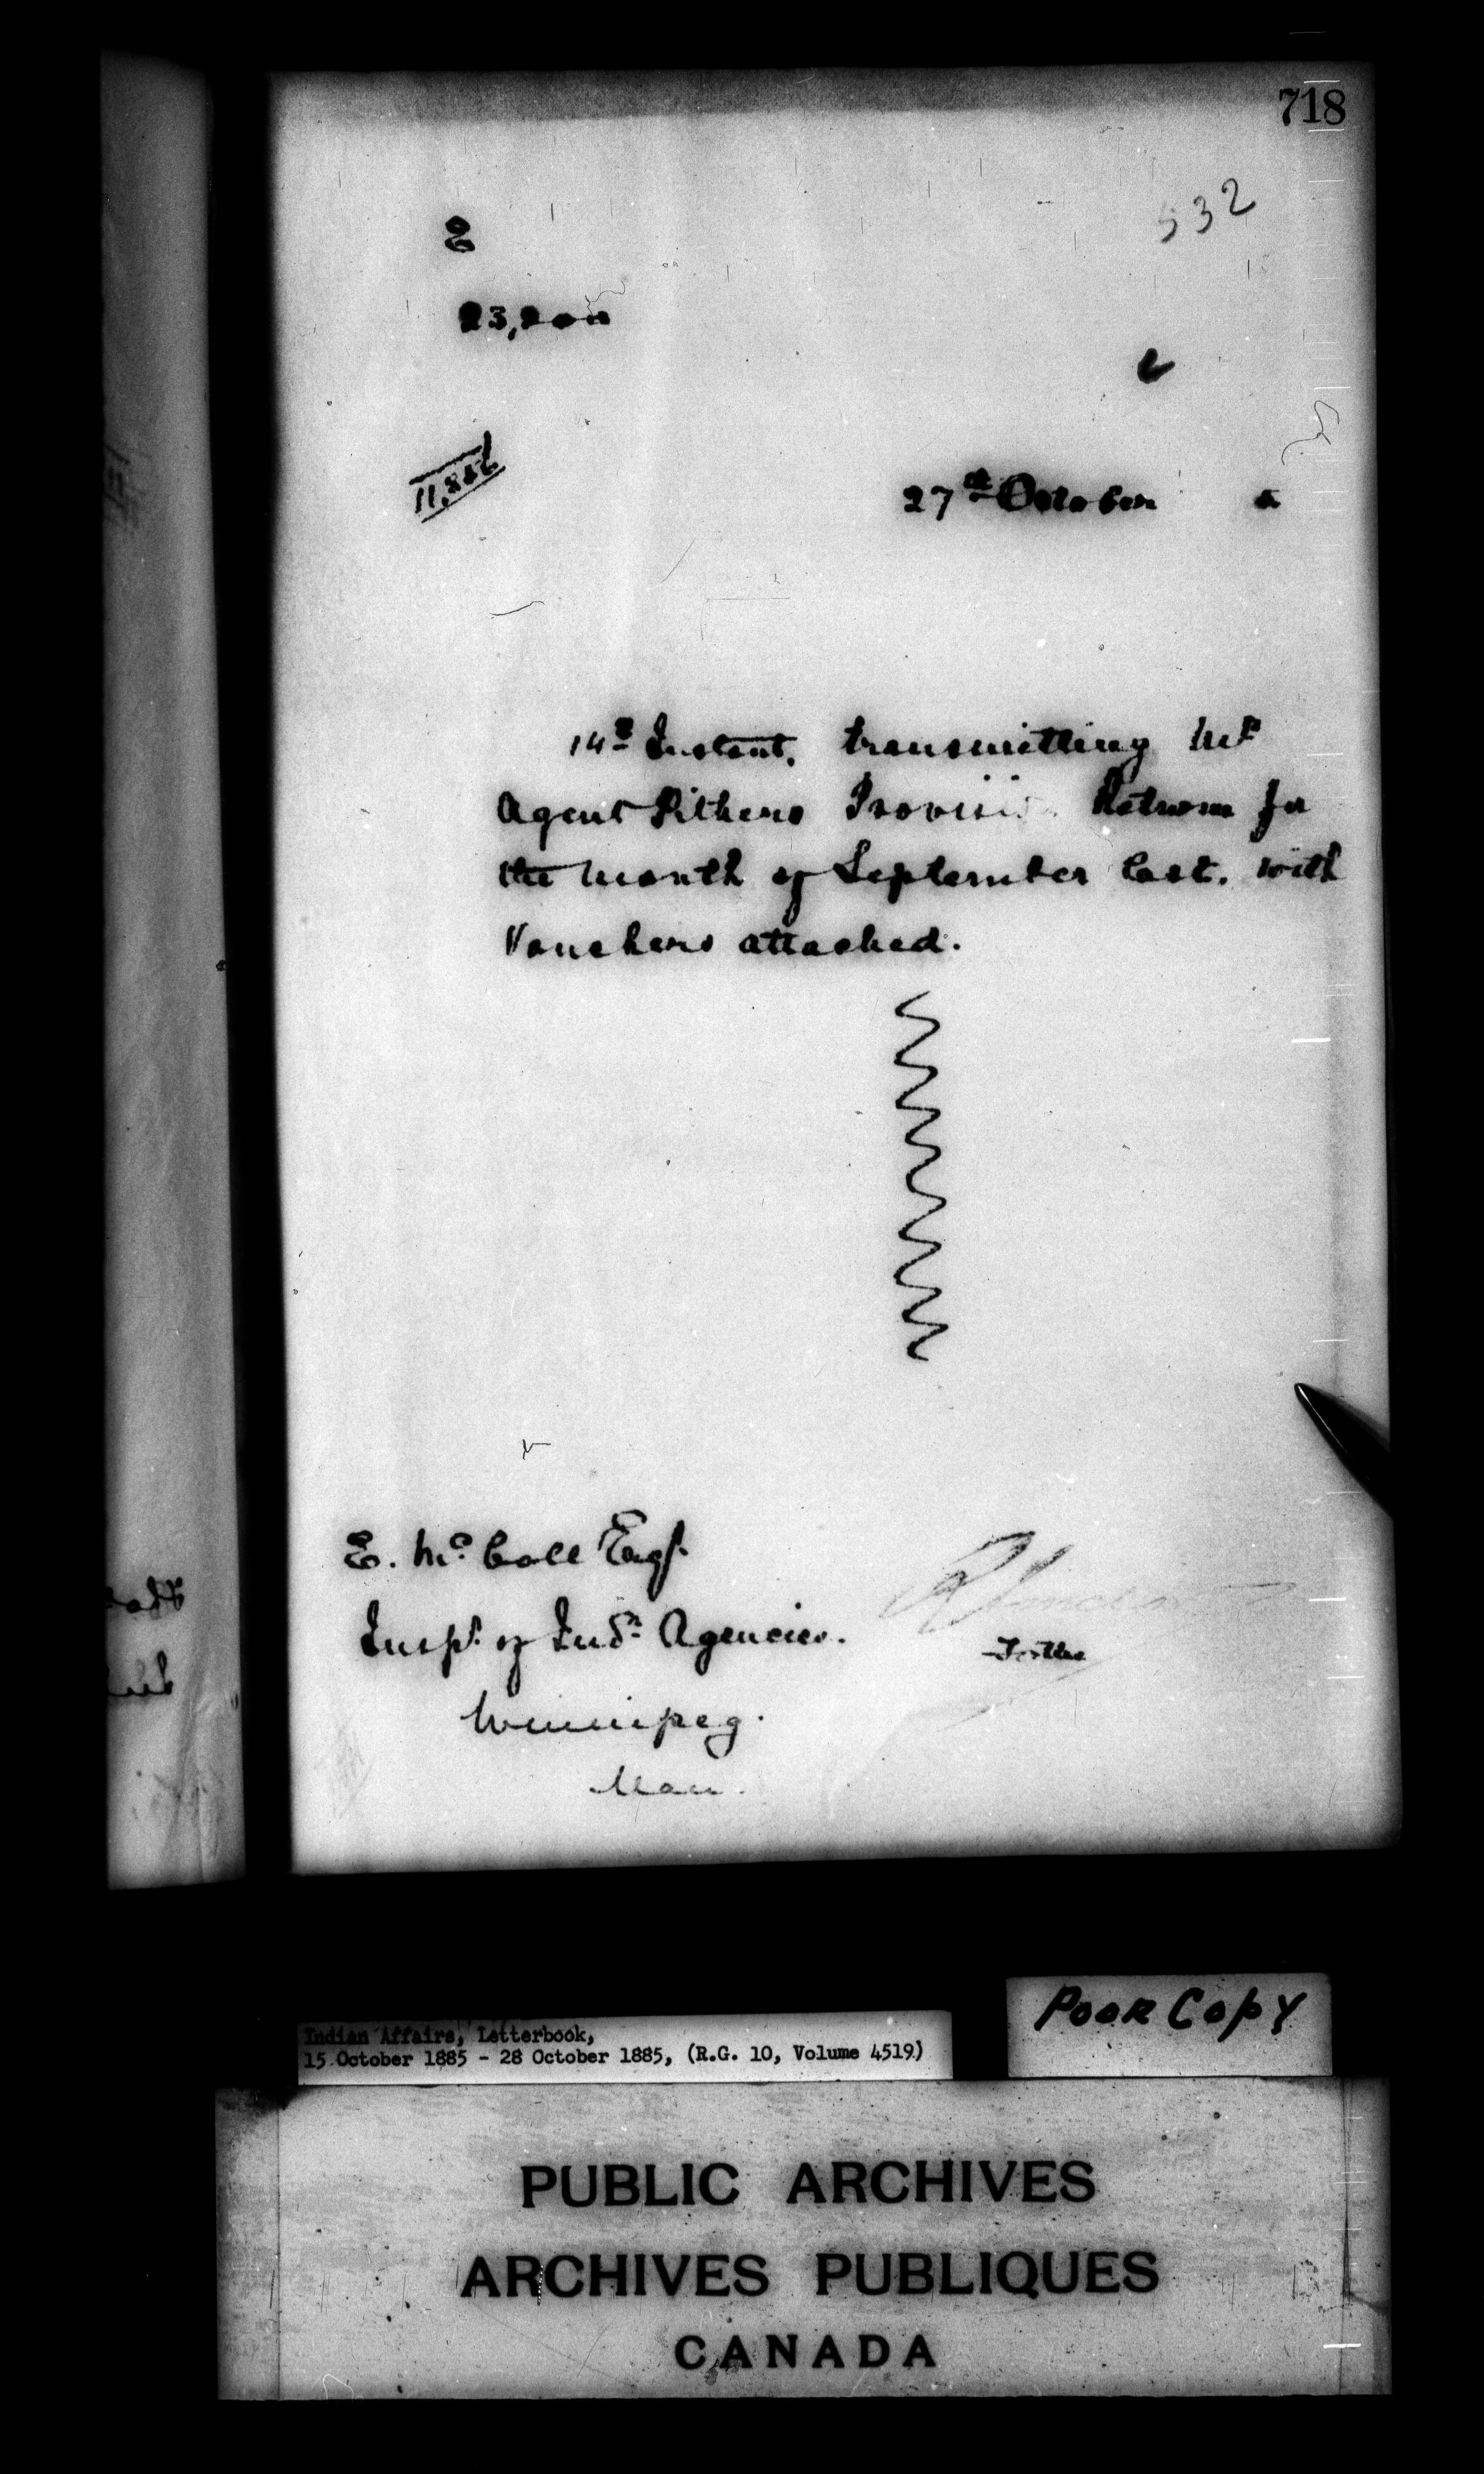 718
532
E
23,200
11,842
27th October 5
14th Instant, transmitting Mr
Agent Pithers Provision Return for
the month of September last, with
Vouchers attached.
E. McColl Esqr.
Inspr. of Indn. Agencies.
Winnipeg.
Man.
Poor Copy
Indian Affairs, Letterbook,
15 October 1885 - 28 October 1885, (R.G. 10, Volume 4519)
PUBLIC ARCHIVES
ARCHIVES PUBLIQUES
CANADA